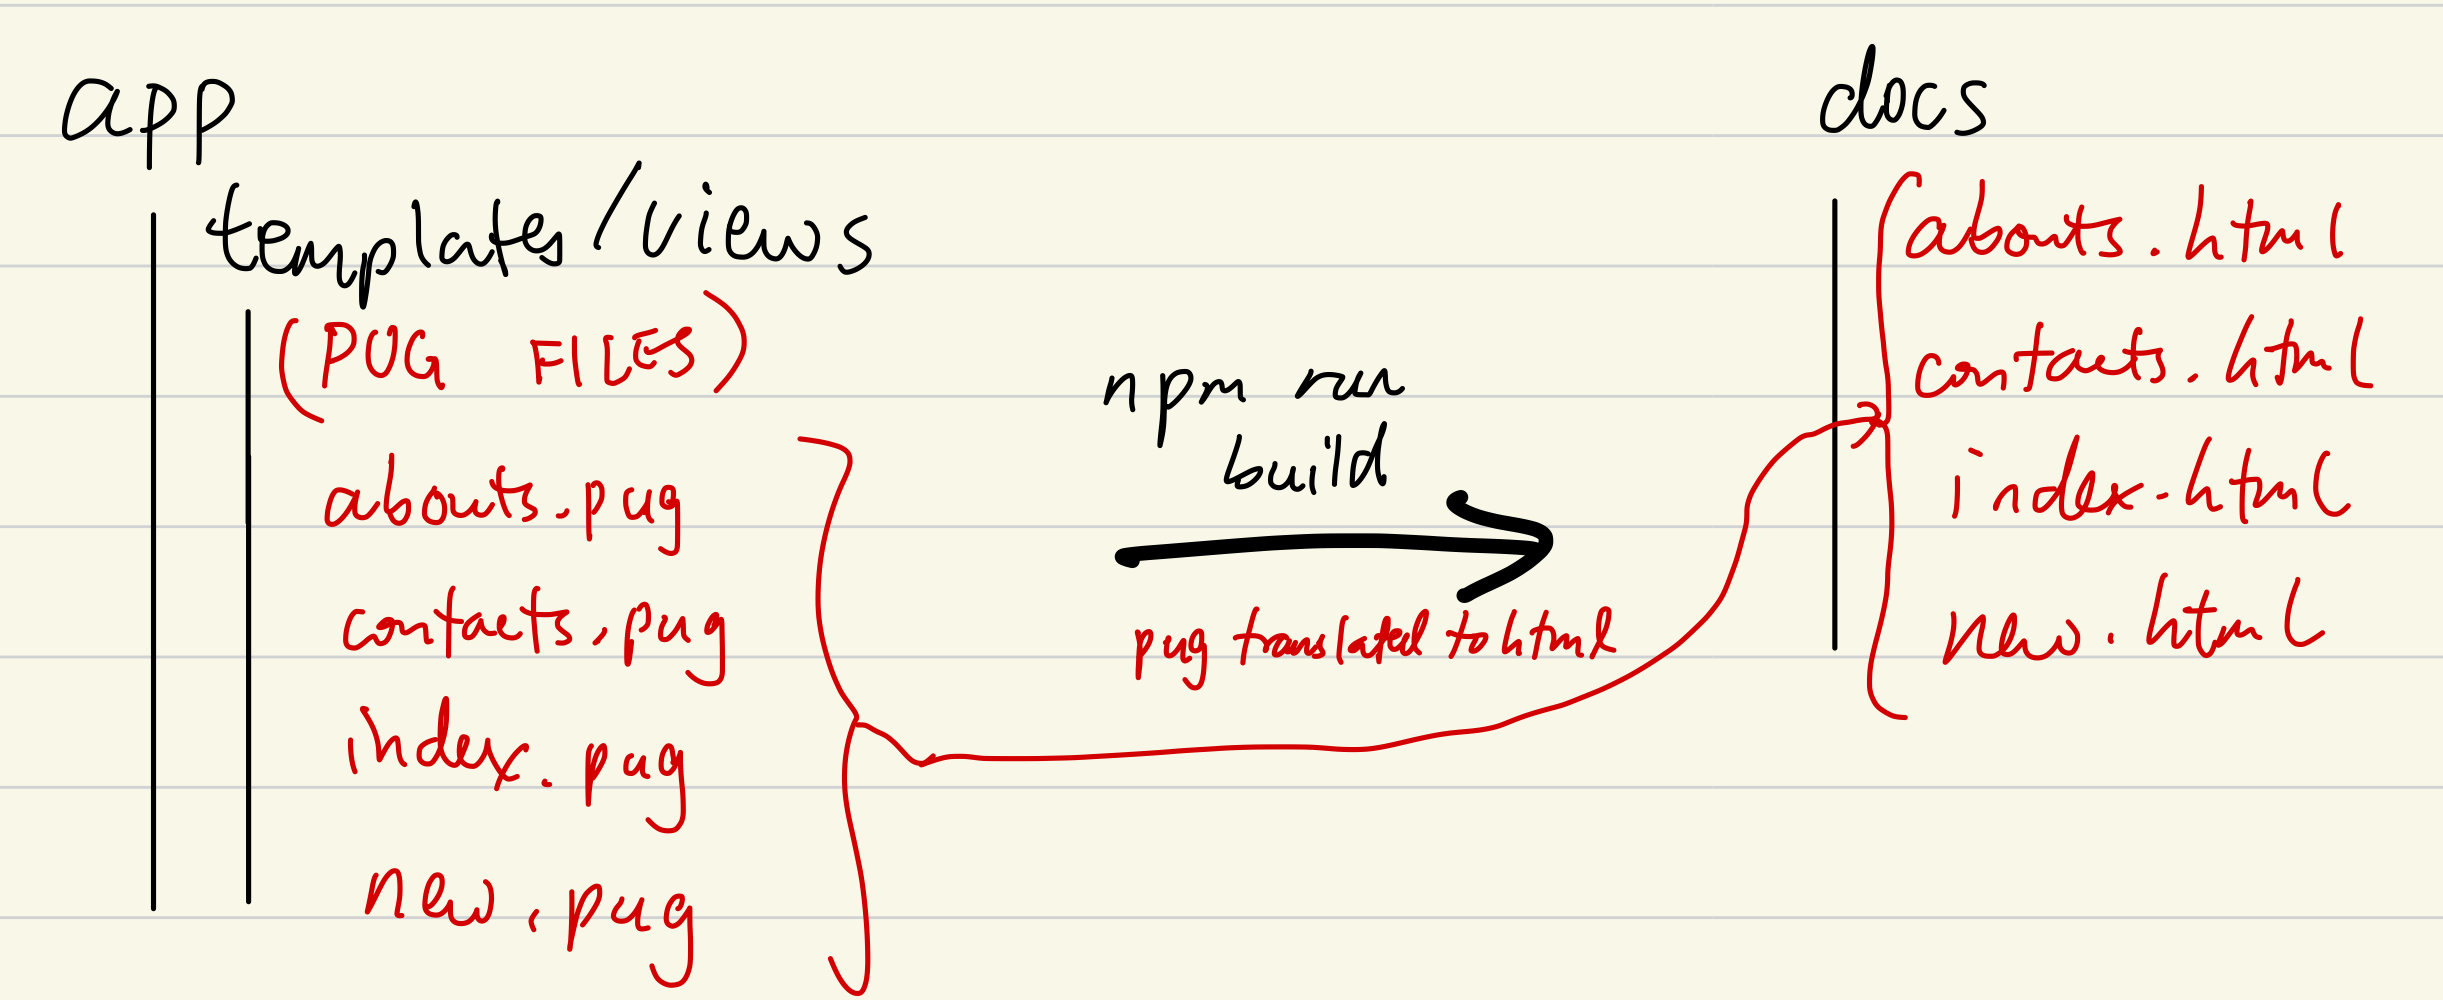 app
templates/views
(PUG FILES)
abouts.pug
contacts.pug
index.pug
new.pug
npm run
build
pug translated to html
docs
abouts.html
contacts.html
index.html
new.html